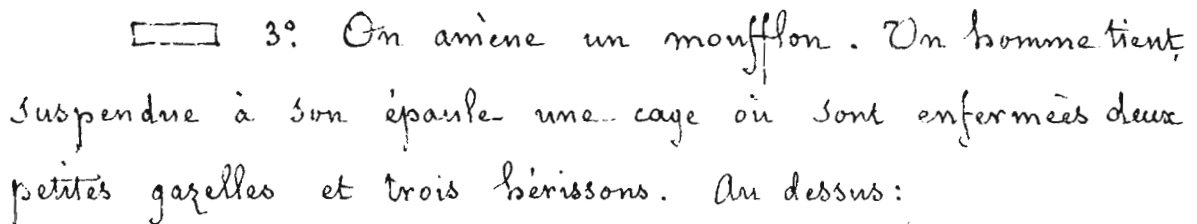 3º. On amène un moufflon. Un homme tient,
suspendue à son épaule une cage où sont enfermées deux
petites gazelles et trois hérissons. Au dessus: